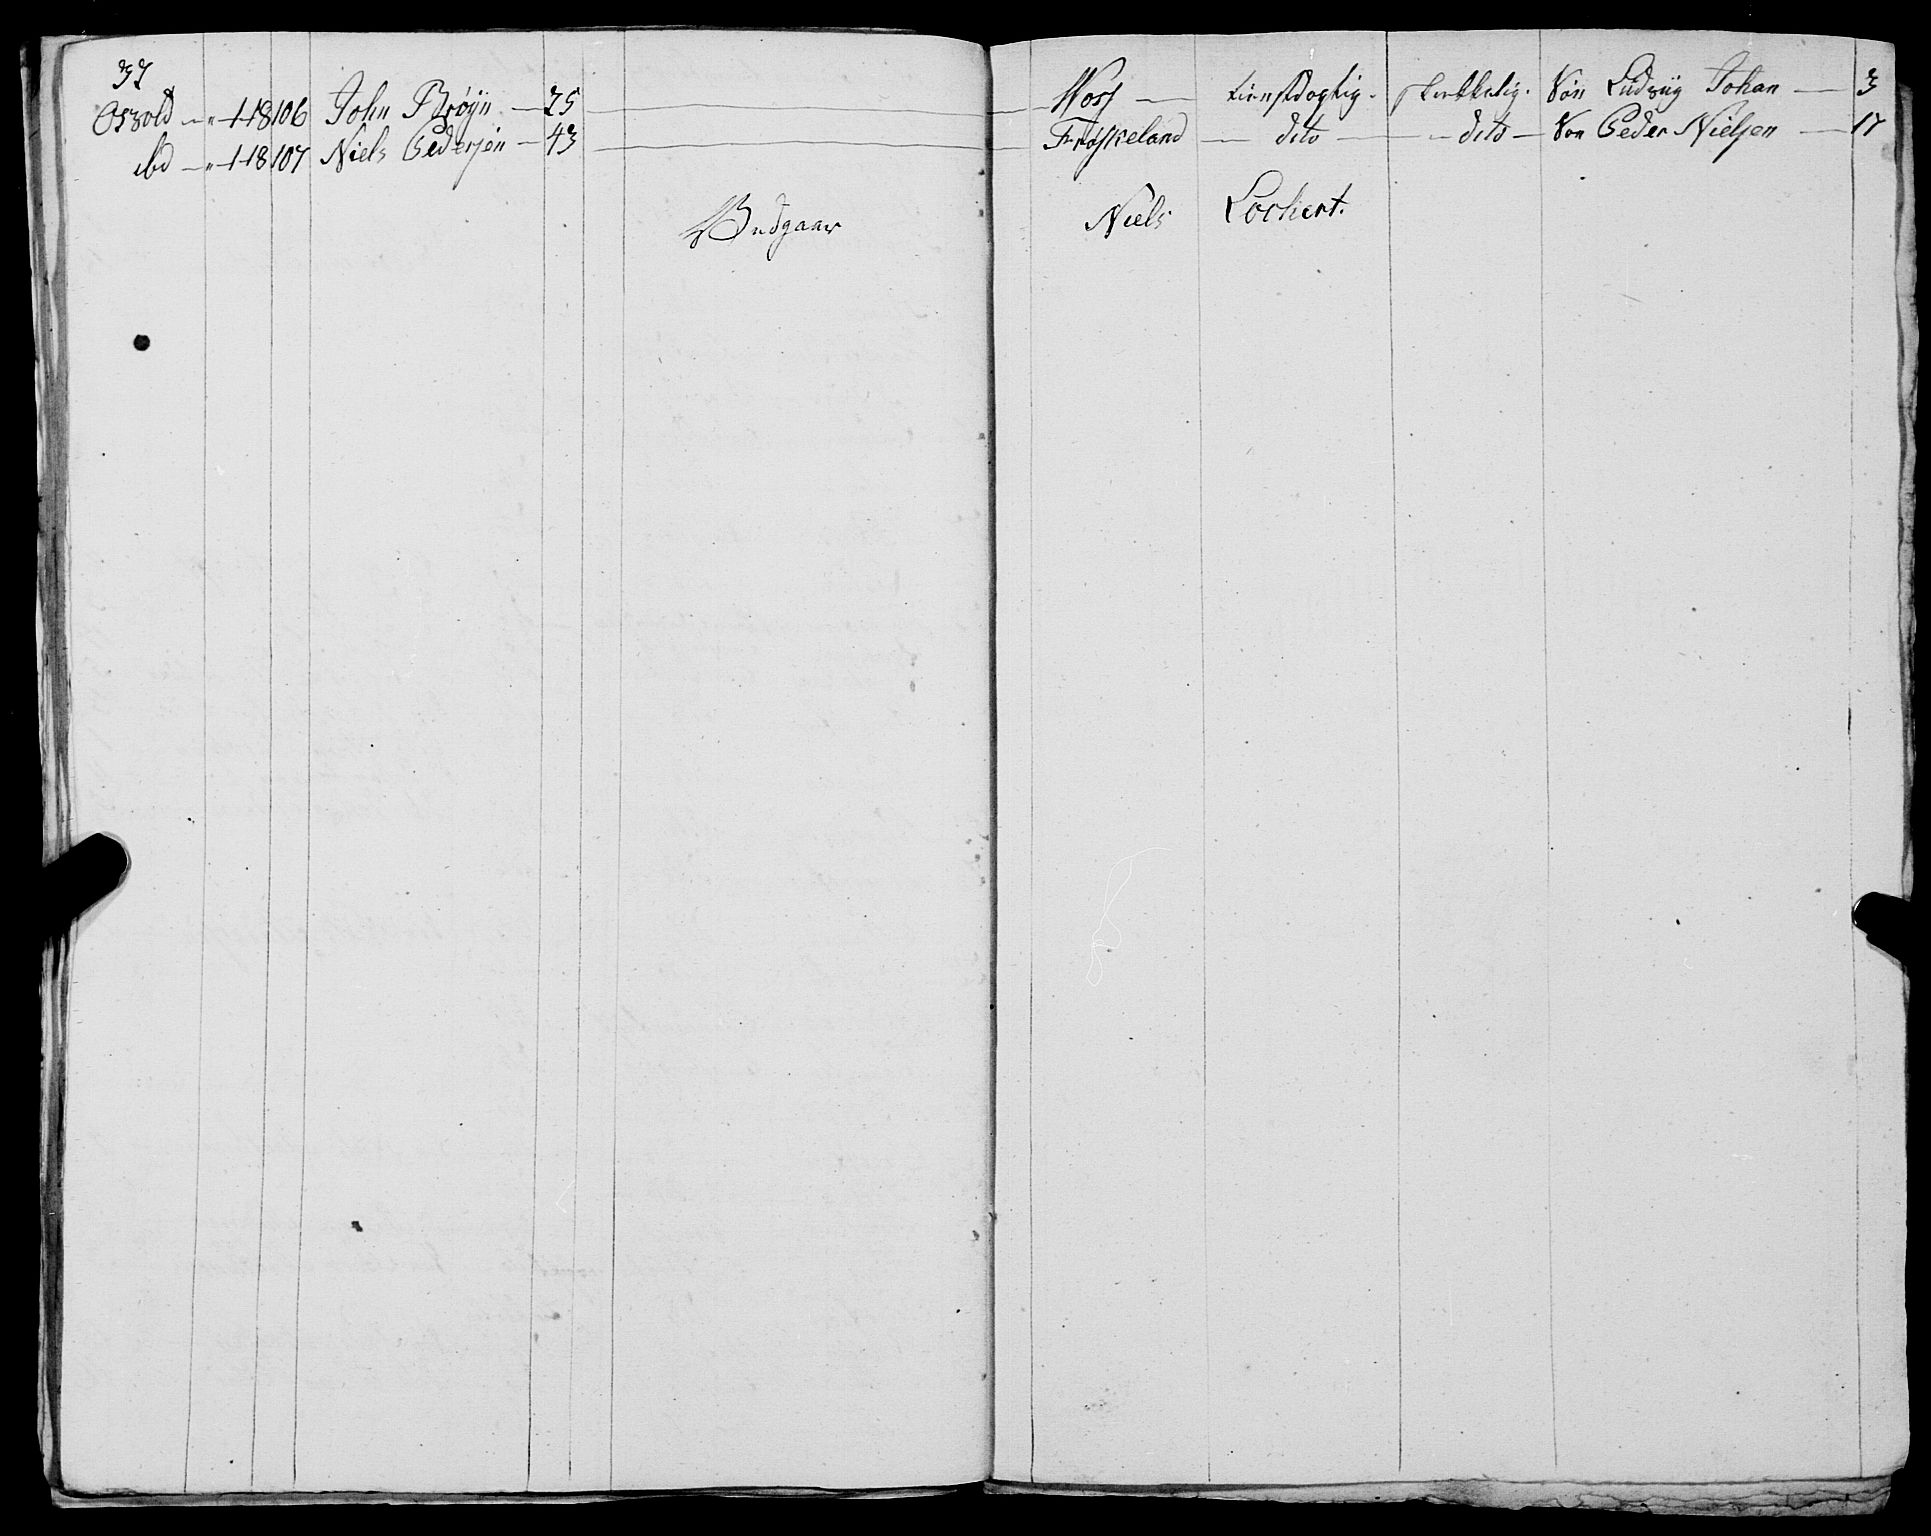 37
Osvold — " — 1 18 106 John Brøyn — 25 — Woss — tienstdøgtig. skikkelig. Søn Ludvig Johan — 3
ibd — " — 1 18 107 Niels Pedersen — 43 — Frøskeland — dito — dito — Søn Peder Nielsen — 17
Niels Lochert.